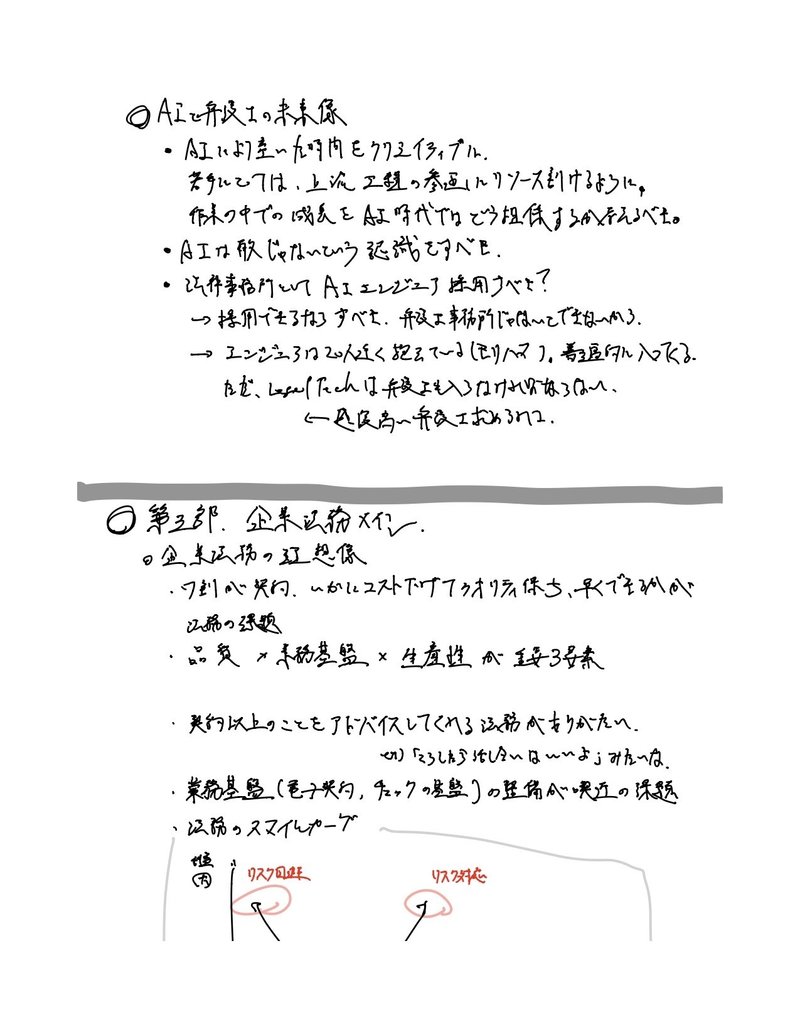 ○ AIと弁護士の未来像
・AIにより空いた時間をクリエイティブに.
若手にとっては、上流工程の参画にリソース割けるように。
作業の中での成長をAI時代ではどう担保するか考えるべき。
・AIは敵じゃないという認識をすべき.
・法律事務所としてAIエンジニア採用すべき?
→ 採用できるならすべき. 弁護士事務所じゃないとできないから.
→ エンジニアは20人近く抱えている(モリハマ). 普通に入ってくる.
ただ、Legal Techは弁護士も入らなければならない.
← 処度高い弁護士求められる.
○ 第三部. 企業法務メイン.
○ 企業法務の理想像
・7割が契約. いかにコスト下げてクオリティ保ち、早くできるかが
法務の課題
・品質 × 業務基盤 × 生産性 が重要3要素
・契約以上のことをアドバイスしてくれる法務がありがたい.
みたいな.
・業務基盤(電子契約, チェックの基盤)の整備が喫近の課題
・法務のスマイルカーブ
リスク回避
リスク対応